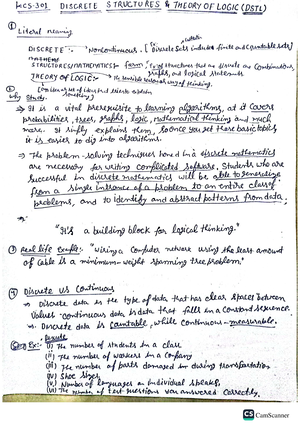 KCS-301 DISCRETE STRUCTURES & THEORY OF LOGIC (DSTL)
① Literal meaning
DISCRETE :- Noncontinuous. [Discrete sets include finite and countable sets]
MATHEMATICS
THEORY OF LOGIC :- The sensible rational way of thinking.
② Why Study:
⇒ It is a vital prerequisite to learning algorithms, as it covers
probabilities, trees, graphs, logic, mathematical thinking and much
more. It simply explains them, so once you get those basic topics
it is easier to dig into algorithms.
⇒ The problem-solving techniques honed in a discrete mathematics
are necessary for writing complicated software. Students who are
successful in discrete mathematics will be able to generalize
from a single instance of a problem to an entire class of
problems, and to identify and abstract patterns from data.
"It's a building block for logical thinking."
③ Real life Example: "Wiring a computer network using the least amount
of cable is a minimum-weight spanning tree problem."
④ Discrete vs Continuous
⇒ Discrete data is the type of data that has clear spaces between
values. Continuous data is data that falls in a constant sequence.
⇒ Discrete data is countable, while continuous - measurable.
Ex:- Discrete
(i) The number of students in a class
(ii) The number of workers in a company
(iii) The number of parts damaged in during transportation
(iv) Shoe sizes
(v) Number of languages an individual speaks,
(vi) The number of test questions you answered correctly.
CS CamScanner